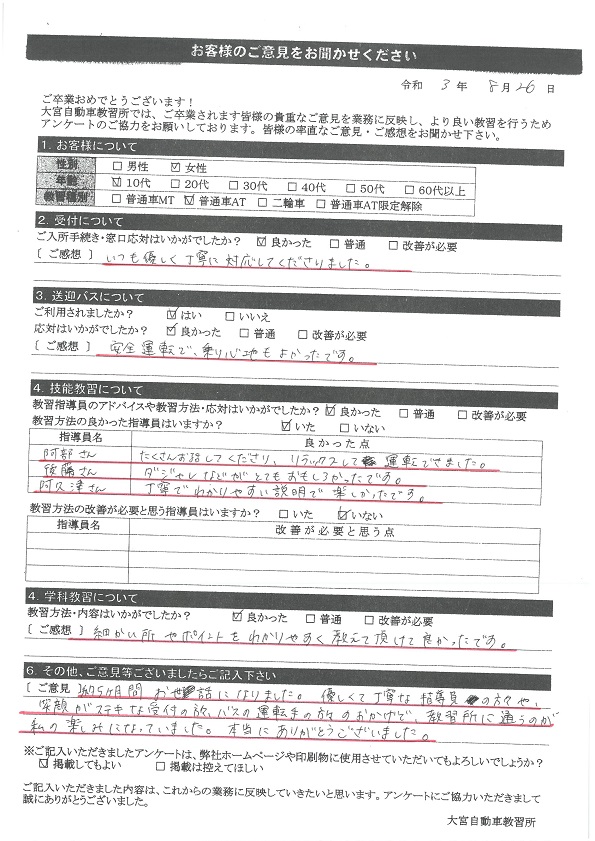 お客様のご意見をお聞かせください
令和 3 年 8 月 26 日
ご卒業おめでとうございます！
大宮自動車教習所では、ご卒業されます皆様の貴重なご意見を業務に反映し、より良い教習を行うため
アンケートのご協力をお願いしております。皆様の率直なご意見・ご感想をお聞かせ下さい。
1. お客様について
性別 □ 男性 ☑ 女性
年齢 ☑ 10代 □ 20代 □ 30代 □ 40代 □ 50代 □ 60代以上
教習種別 □ 普通車MT ☑ 普通車AT □ 二輪車 □ 普通車AT限定解除
2. 受付について
ご入所手続き・窓口応対はいかがでしたか？ ☑ 良かった □ 普通 □ 改善が必要
[ ご感想 ] いつも優しく丁寧に対応してくださりました。
3. 送迎バスについて
ご利用されましたか？ ☑ はい □ いいえ
応対はいかがでしたか？ ☑ 良かった □ 普通 □ 改善が必要
[ ご感想 ] 安全運転で、乗り心地もよかったです。
4. 技能教習について
教習指導員のアドバイスや教習方法・応対はいかがでしたか？ ☑ 良かった □ 普通 □ 改善が必要
教習方法の良かった指導員はいますか？ ☑ いた □ いない
指導員名 良かった点
阿部さん たくさんお話してくださり、リラックスして運転できました。
後藤さん ダジャレなどがとてもおもしろかったです。
阿久津さん 丁寧でわかりやすい説明で楽しかったです。
教習方法の改善が必要と思う指導員はいますか？ □ いた ☑ いない
指導員名 改善が必要と思う点
4. 学科教習について
教習方法・内容はいかがでしたか？ ☑ 良かった □ 普通 □ 改善が必要
[ ご感想 ] 細かい所やポイントをわかりやすく教えて頂けて良かったです。
6. その他、ご意見等ございましたらご記入下さい
[ ご意見 ] 約5ヶ月間お世話になりました。優しくて丁寧な指導員の方々や、
笑顔がステキな受付の方、バスの運転手の方のおかげで、教習所に通うのが
私の楽しみになっていました。本当にありがとうございました。
※ご記入いただきましたアンケートは、弊社ホームページや印刷物に使用させていただいてもよろしいでしょうか？
☑ 掲載してもよい □ 掲載は控えてほしい
ご記入いただきました内容は、これからの業務に反映していきたいと思います。アンケートにご協力いただきまして
誠にありがとうございました。
大宮自動車教習所